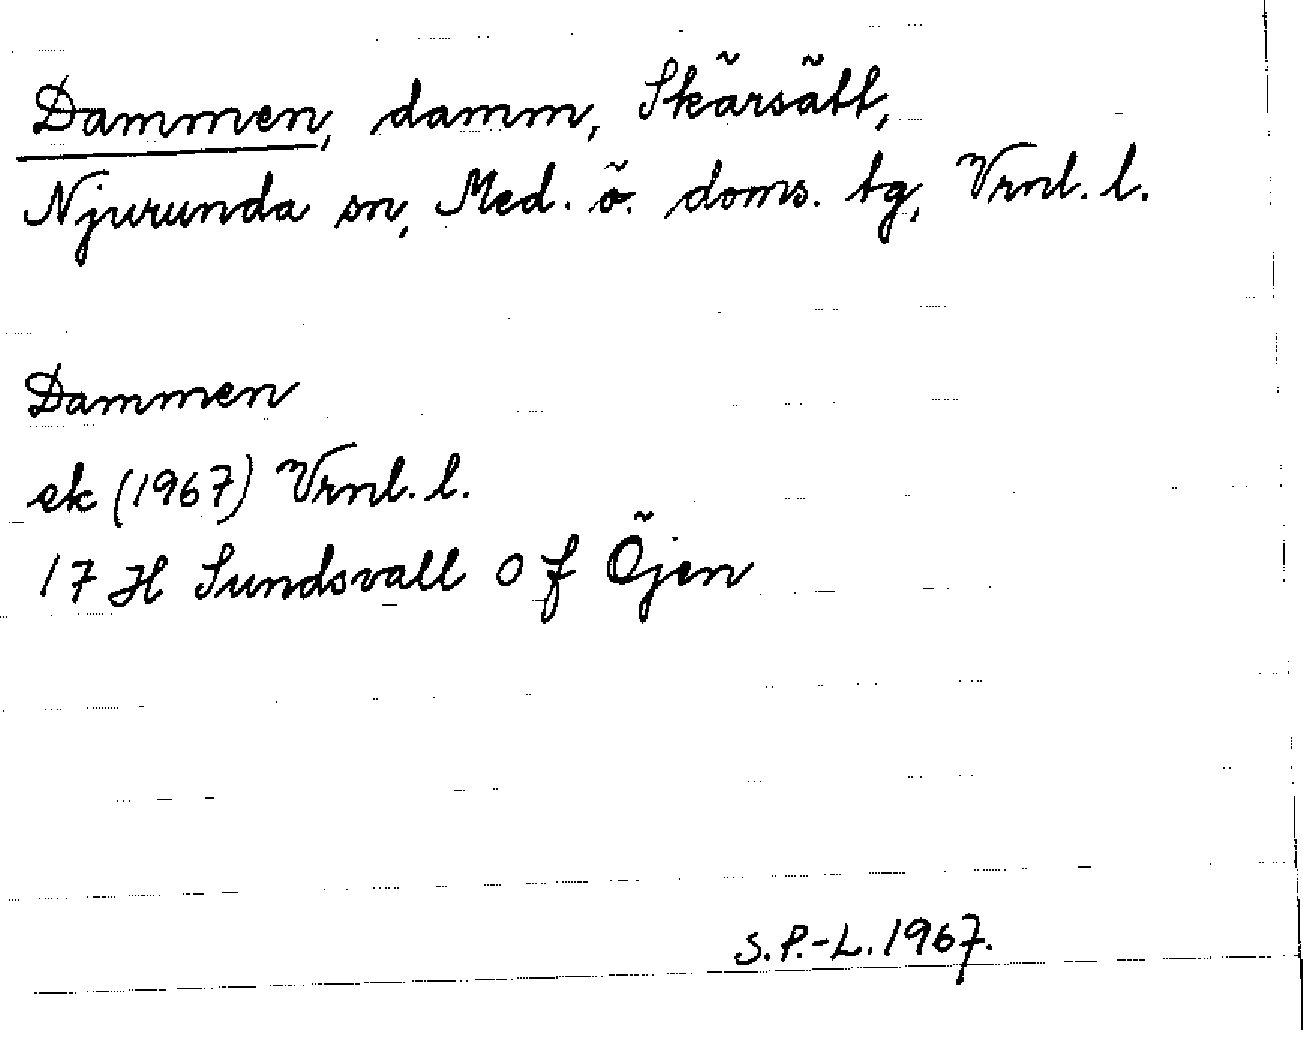 Dammen, damm, Skärsätt,
Njurunda sn, Med. ö. doms. tg, Vrnl. l.
Dammen
ek (1967) Vrnl. l.
17 H Sundsvall O f Öjen
S.P.-L. 1967.